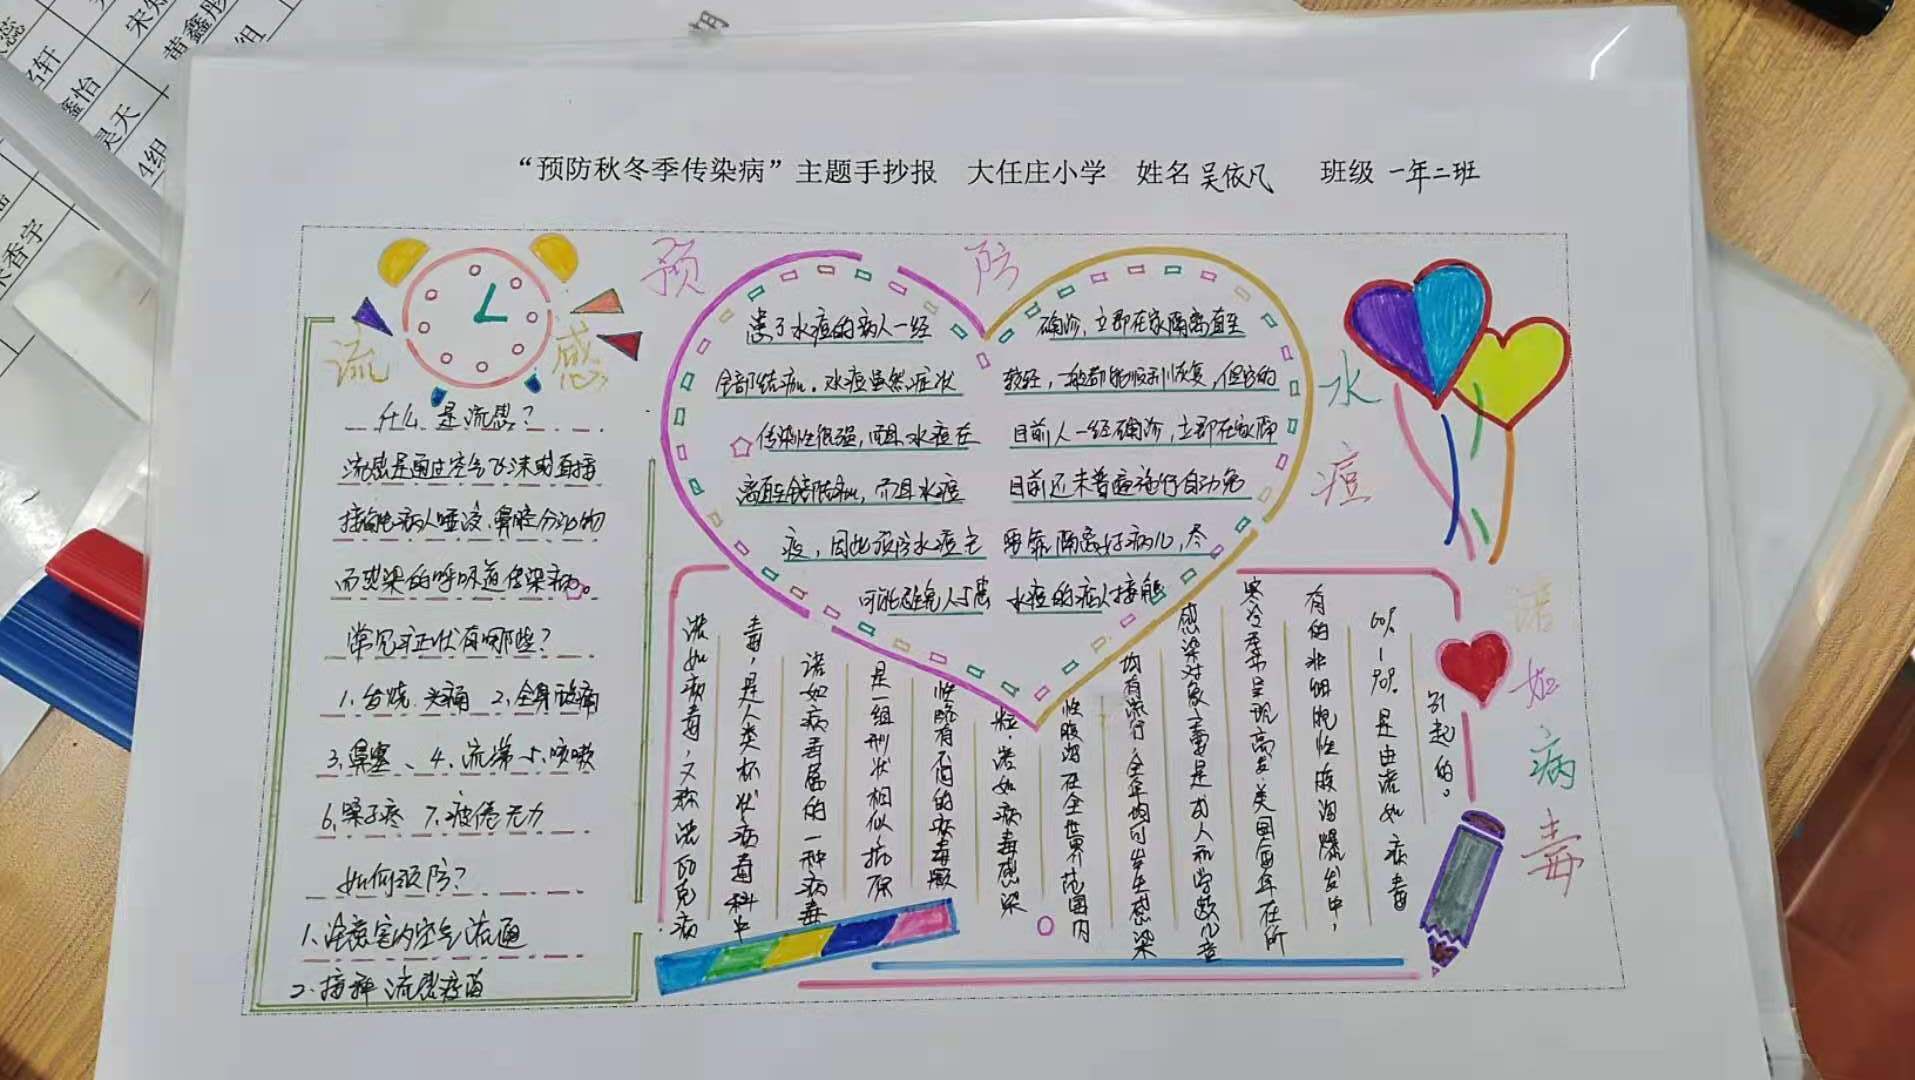 “预防秋冬季传染病”主题手抄报 大任庄小学 姓名 吴依凡 班级 一年二班
流 感
什么是流感?
流感是通过空气飞沫或直接
接触病人唾液、鼻腔分泌物
而感染的呼吸道传染病。
常见症状有哪些?
1、发烧、头痛 2、全身酸痛
3、鼻塞、4、流涕 5、咳嗽
6、嗓子疼 7、疲倦无力
如何预防?
1、注意室内空气流通
2、接种流感疫苗
预 防 水 痘
患了水痘的病人一经 确诊,立即在家隔离直至
全部结痂。水痘虽然症状 较轻,一般都能顺利恢复,但它的
传染性很强,而且水痘在 目前人一经确诊,立即在家隔
离直至全部结痂,而且水痘 目前还未普遍施行自动免
疫,因此预防水痘主 要靠隔离好病儿,尽
可能避免人与患 水痘的病人接触
诺 如 病 毒
诺如病毒,又称诺瓦克病
毒,是人类杯状病毒科中
诺如病毒属的一种病毒
是一组形状相似抗原
性略有不同的病毒颗
粒。诺如病毒感染
性腹泻在全世界范围内
均有流行,全年均可发生感染
感染对象主要是成人和学龄儿童
寒冷季节呈现高发。美国每年在所
有的非细胞性腹泻爆发中,
60%-90%是由诺如病毒
引起的。
宋
黄鑫彤
组
名轩
鑫怡
昊天
4组
香宇